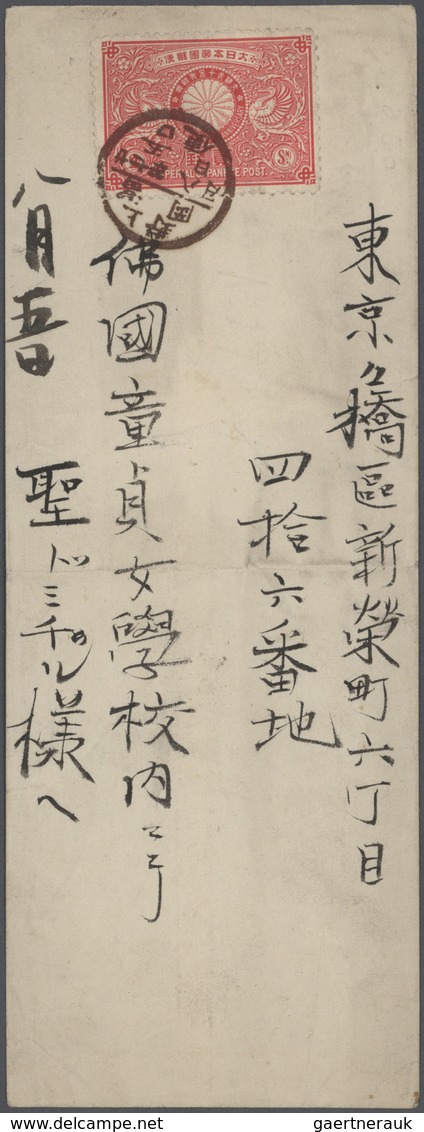 東京々橋區新榮町六丁目
四拾六番地
佛國童貞女學校内ニテ
聖ドミチル様へ
八月五日
大日本帝國郵便
IMPERIAL JAPANESE POST.
2 SN
gaertnerauk